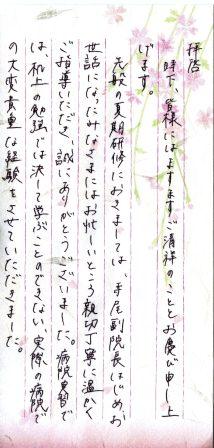 拝啓
時下、皆様にはますますご清祥のこととお慶び申し上
げます。
先般の夏期研修におきましては、手尾副院長はじめ、お
世話になったみなさまにはお忙しいところ親切丁寧に温かく
ご指導いただき、誠にありがとうございました。病院実習で
は、机上の勉強では決して学ぶことのできない、実際の病院で
の大変貴重な経験をさせていただきました。